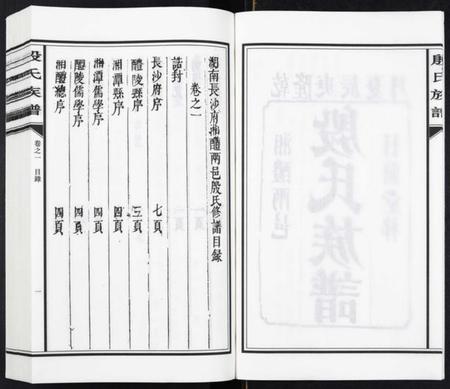 殷氏族譜
湘潭兩邑
殷氏族譜
湖南長沙府湘醴兩邑殷氏修譜目錄
卷之一
誥封
長沙府序 七頁
醴陵縣序 三頁
湘潭縣序 四頁
湘潭儒學序 四頁
醴陵儒學序 四頁
湘醴總序 四頁
殷氏族譜
卷之一 目錄
一